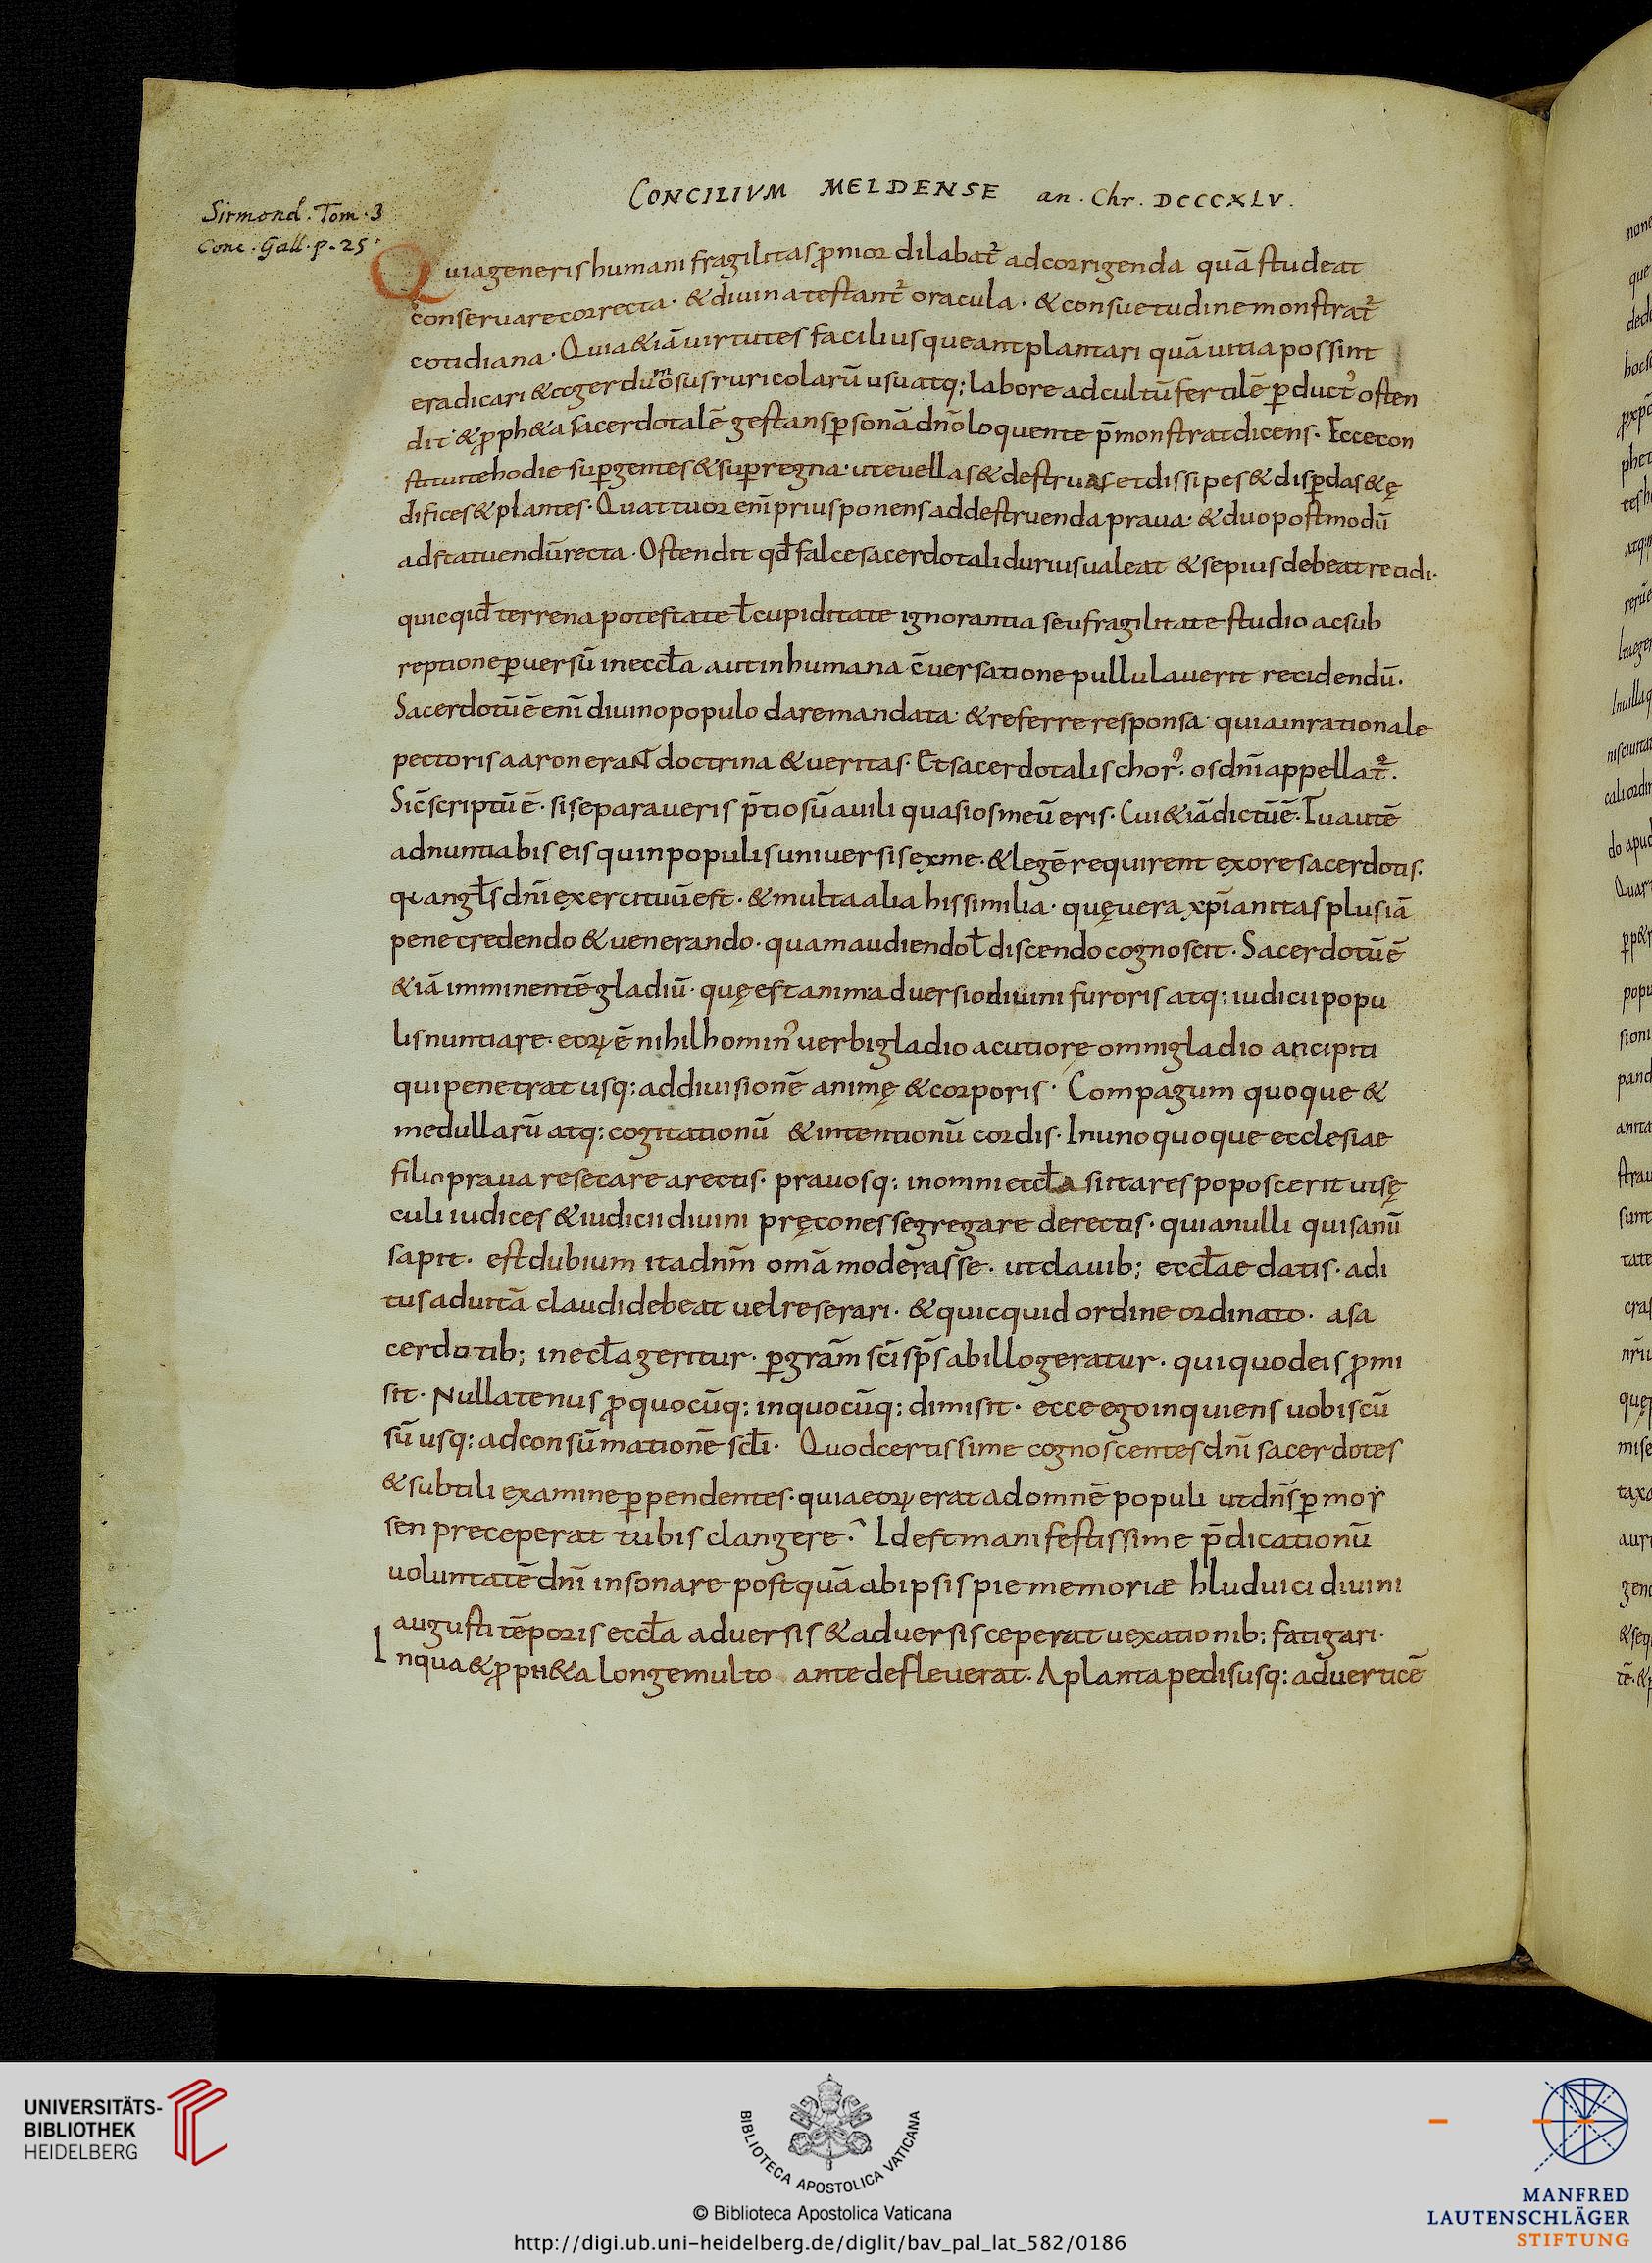 CONCILIVM MELDENSE an. Chr. DCCCXLV.
Sirmond. Tom. 3
Conc. Gall. p. 25
Quia generis humani fragilitas ꝓnior dilabat᷑ ad corrigenda quā studeat
conseruare correcta. & diuina testant᷑ oracula. & consuetudine monstrat᷑
cotidiana. Quia &iā uirtutes facilius queant plantari quā uitia possint
eradicari & ager dumosus ruricolarū usu atq; labore ad cultū fertilē ꝑduct᷒ osten
dit & ꝓph&a sacerdotalē gestans ꝑsonā dn̄o loquente p̄monstrat dicens. Ecce con
stitui te hodie suꝑ gentes & suꝑ regna. ut euellas & destruas et dissipes & disꝑdas & ę
difices & plantes. Quattuor enī prius ponens ad destruenda praua. & duo postmodū
ad statuendū recta. Ostendit qđ falce sacerdotali durius ualeat & sepius debeat recidi.
quicqid̄ terrena potestate ł cupiditate ignorantia seu fragilitate studio ac sub
reptione ꝑuersū in eccła aut in humana c̄uersatione pullulauerit recidendū.
Sacerdotū ē enī diuino populo dare mandata. & referre responsa. quia in rationale
pectoris aaron erant doctrina & ueritas. Et sacerdotalis chor᷒. os dn̄i appellat᷑.
Sic̄ scriptū ē. si separaueris p̄tiosū a uili quasi os meū eris. Cui &iā dictū ē. Tu autē
adnuntiabis eis quin populis uniuersis ex me. & legē requirent ex ore sacerdotis.
qꝛ angłs dn̄i exercituū est. & multa alia his similia. quę uera xp̄ianitas plus iā
pene credendo & uenerando. quam audiendo ł discendo cognoscit. Sacerdotū ē
&iā imminentē gladiū. quę est animaduersio diuini furoris atq; iudicii popu
lis nuntiare. eoꝝ ē nihilhomin᷒ uerbi gladio acutiorę omni gladio ancipiti
qui penetrat usq; ad diuisionē animę & corporis. Compagum quoque &
medullarū atq; cogitationū & intentionū cordis. In uno quoque ecclesiae
filio praua resecare a rectis. prauosq; in omni eccła si ita res poposcerit ut sę
culi iudices & iudicii diuini pręcones segregare de rectis. quia nulli qui sanū
sapit. est dubium ita dnm̄ omā moderasse. ut clauib; eccłae datis. adi
tus ad uitā claudi debeat uel reserari. & quicquid ordine ordinato. a sa
cerdotib; in ecła geritur. ꝑ grām sc̄i sp̄s ab illo geratur. qui quod eis ꝓmi
sit. Nullatenus ꝓ quocūq; in quocūq; dimisit. ecce ego inquiens uobiscū
sū usq; ad consūmationē scłi. Quod certissime cognoscentes dn̄i sacerdotes
& subtili examine ꝑpendentes. quia eoꝝ erat ad omnē populi ut dn̄s ꝑ moy
sen preceperat tubis clangere. Id est manifestissime p̄dicationū
uoluntatē dn̄i insonare postquā ab ipsis pie memoriæ hluduici diuini
augusti tēporis eccła aduersis & aduersis ceperat uexationib; fatigari.
In qua & ꝓph&a longe multo ante defleuerat. A planta pedis usq; ad uerticē
UNIVERSITÄTS-
BIBLIOTHEK
HEIDELBERG
BIBLIOTECA APOSTOLICA VATICANA
© Biblioteca Apostolica Vaticana
http://digi.ub.uni-heidelberg.de/diglit/bav_pal_lat_582/0186
MANFRED
LAUTENSCHLÄGER
STIFTUNG